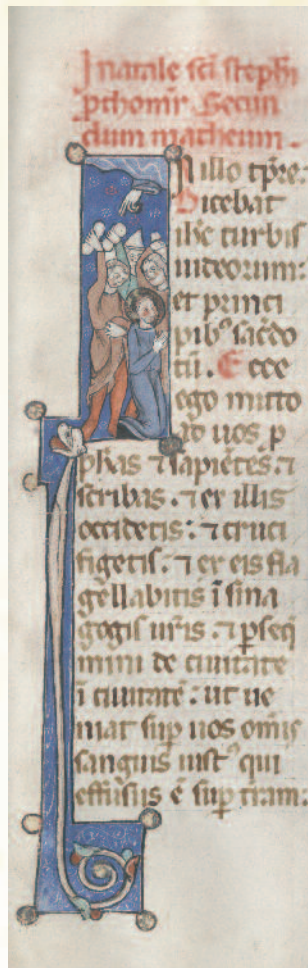 In natale sci stephi
pthomr. Secun
dum matheum.
N illo tpre:
Dicebat
ihc turbis
iudeorum:
et princi
pibꝰ sacdo
tū. Ecce
ego mitto
ad uos p
phas ⁊ sapiētes. ⁊
scribas. ⁊ ex illis
occidetis: ⁊ cruci
figetis. ⁊ ex eis fla
gellabitis ī sina
gogis uris. ⁊ pseq
mini de ciuitate
ī ciuitatē: ut ue
niat sup uos omis
sanguis iustꝰ qui
effusus ē sup tram: